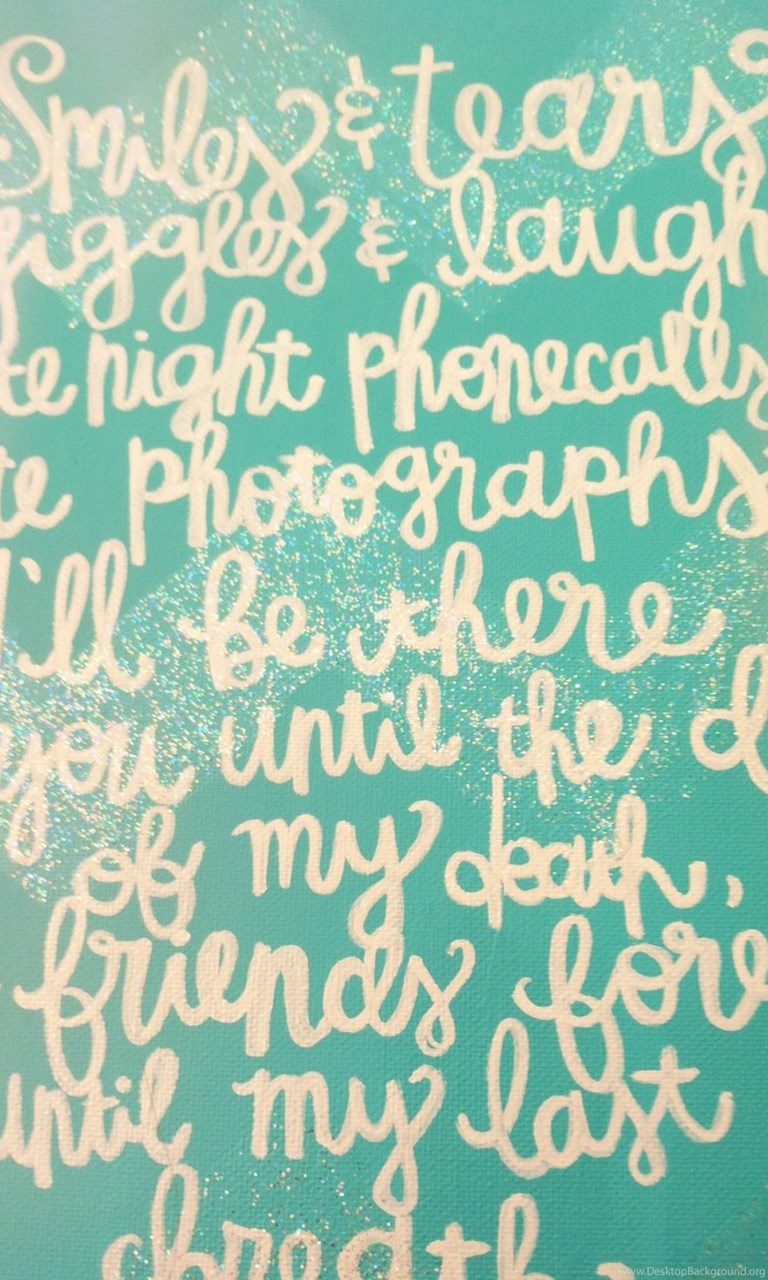 Smiles & tears
giggles & laugh
te night phonecalls
te photographs
I'll be there
you until the d
of my death,
friends fore
until my last
breath
www.DesktopBackground.org